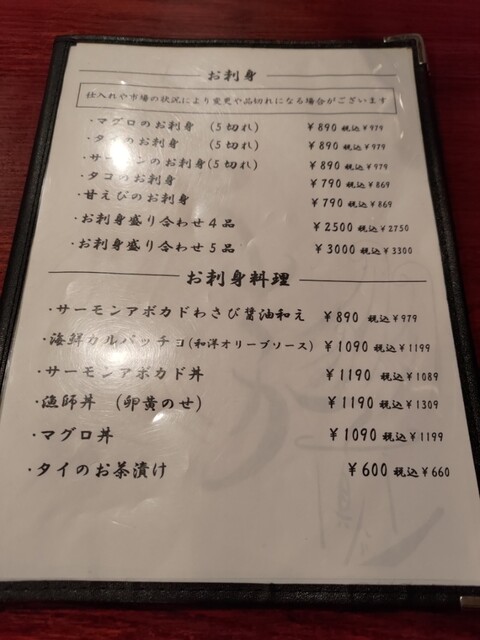 お刺身
仕入れや市場の状況により変更や品切れになる場合がございます
・マグロのお刺身 (5切れ) ¥890 税込¥979
・タイのお刺身 (5切れ) ¥890 税込¥979
・サーモンのお刺身(5切れ) ¥890 税込¥979
・タコのお刺身 ¥790 税込¥869
・甘えびのお刺身 ¥790 税込¥869
・お刺身盛り合わせ4品 ¥2500 税込¥2750
・お刺身盛り合わせ5品 ¥3000 税込¥3300
お刺身料理
・サーモンアボカドわさび醤油和え ¥890 税込¥979
・海鮮カルパッチョ(和洋オリーブソース) ¥1090 税込¥1199
・サーモンアボカド丼 ¥1190 税込¥1089
・漁師丼 (卵黄のせ) ¥1190 税込¥1309
・マグロ丼 ¥1090 税込¥1199
・タイのお茶漬け ¥600 税込¥660